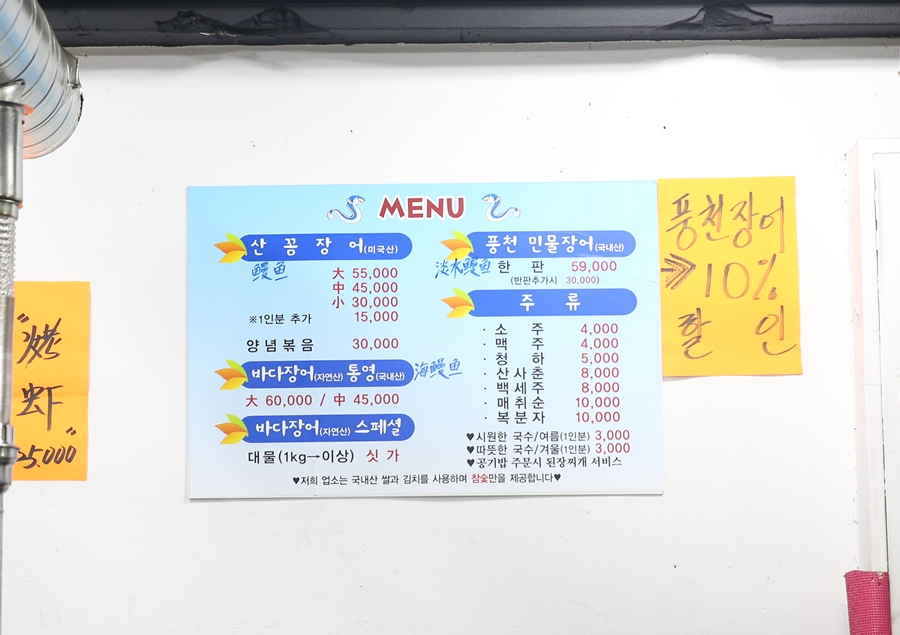 MENU
산 꼼 장 어(미국산)
鳗鱼
大 55,000
中 45,000
小 30,000
※1인분 추가 15,000
양념볶음 30,000
바다장어(자연산) 통영(국내산)
海鳗鱼
大 60,000 / 中 45,000
바다장어(자연산) 스페셜
대물(1kg→이상) 싯 가
풍천 민물장어(국내산)
淡水鳗鱼
한 판 59,000
(반판추가시 30,000)
주 류
· 소 주 4,000
· 맥 주 4,000
· 청 하 5,000
· 산사춘 8,000
· 백세주 8,000
· 매취순 10,000
· 복분자 10,000
♥시원한 국수/여름(1인분) 3,000
♥따뜻한 국수/겨울(1인분) 3,000
♥공기밥 주문시 된장찌개 서비스
♥저희 업소는 국내산 쌀과 김치를 사용하며 참숯만을 제공합니다♥
풍천장어
⇒ 10%
할 인
"烤
虾"
25.000